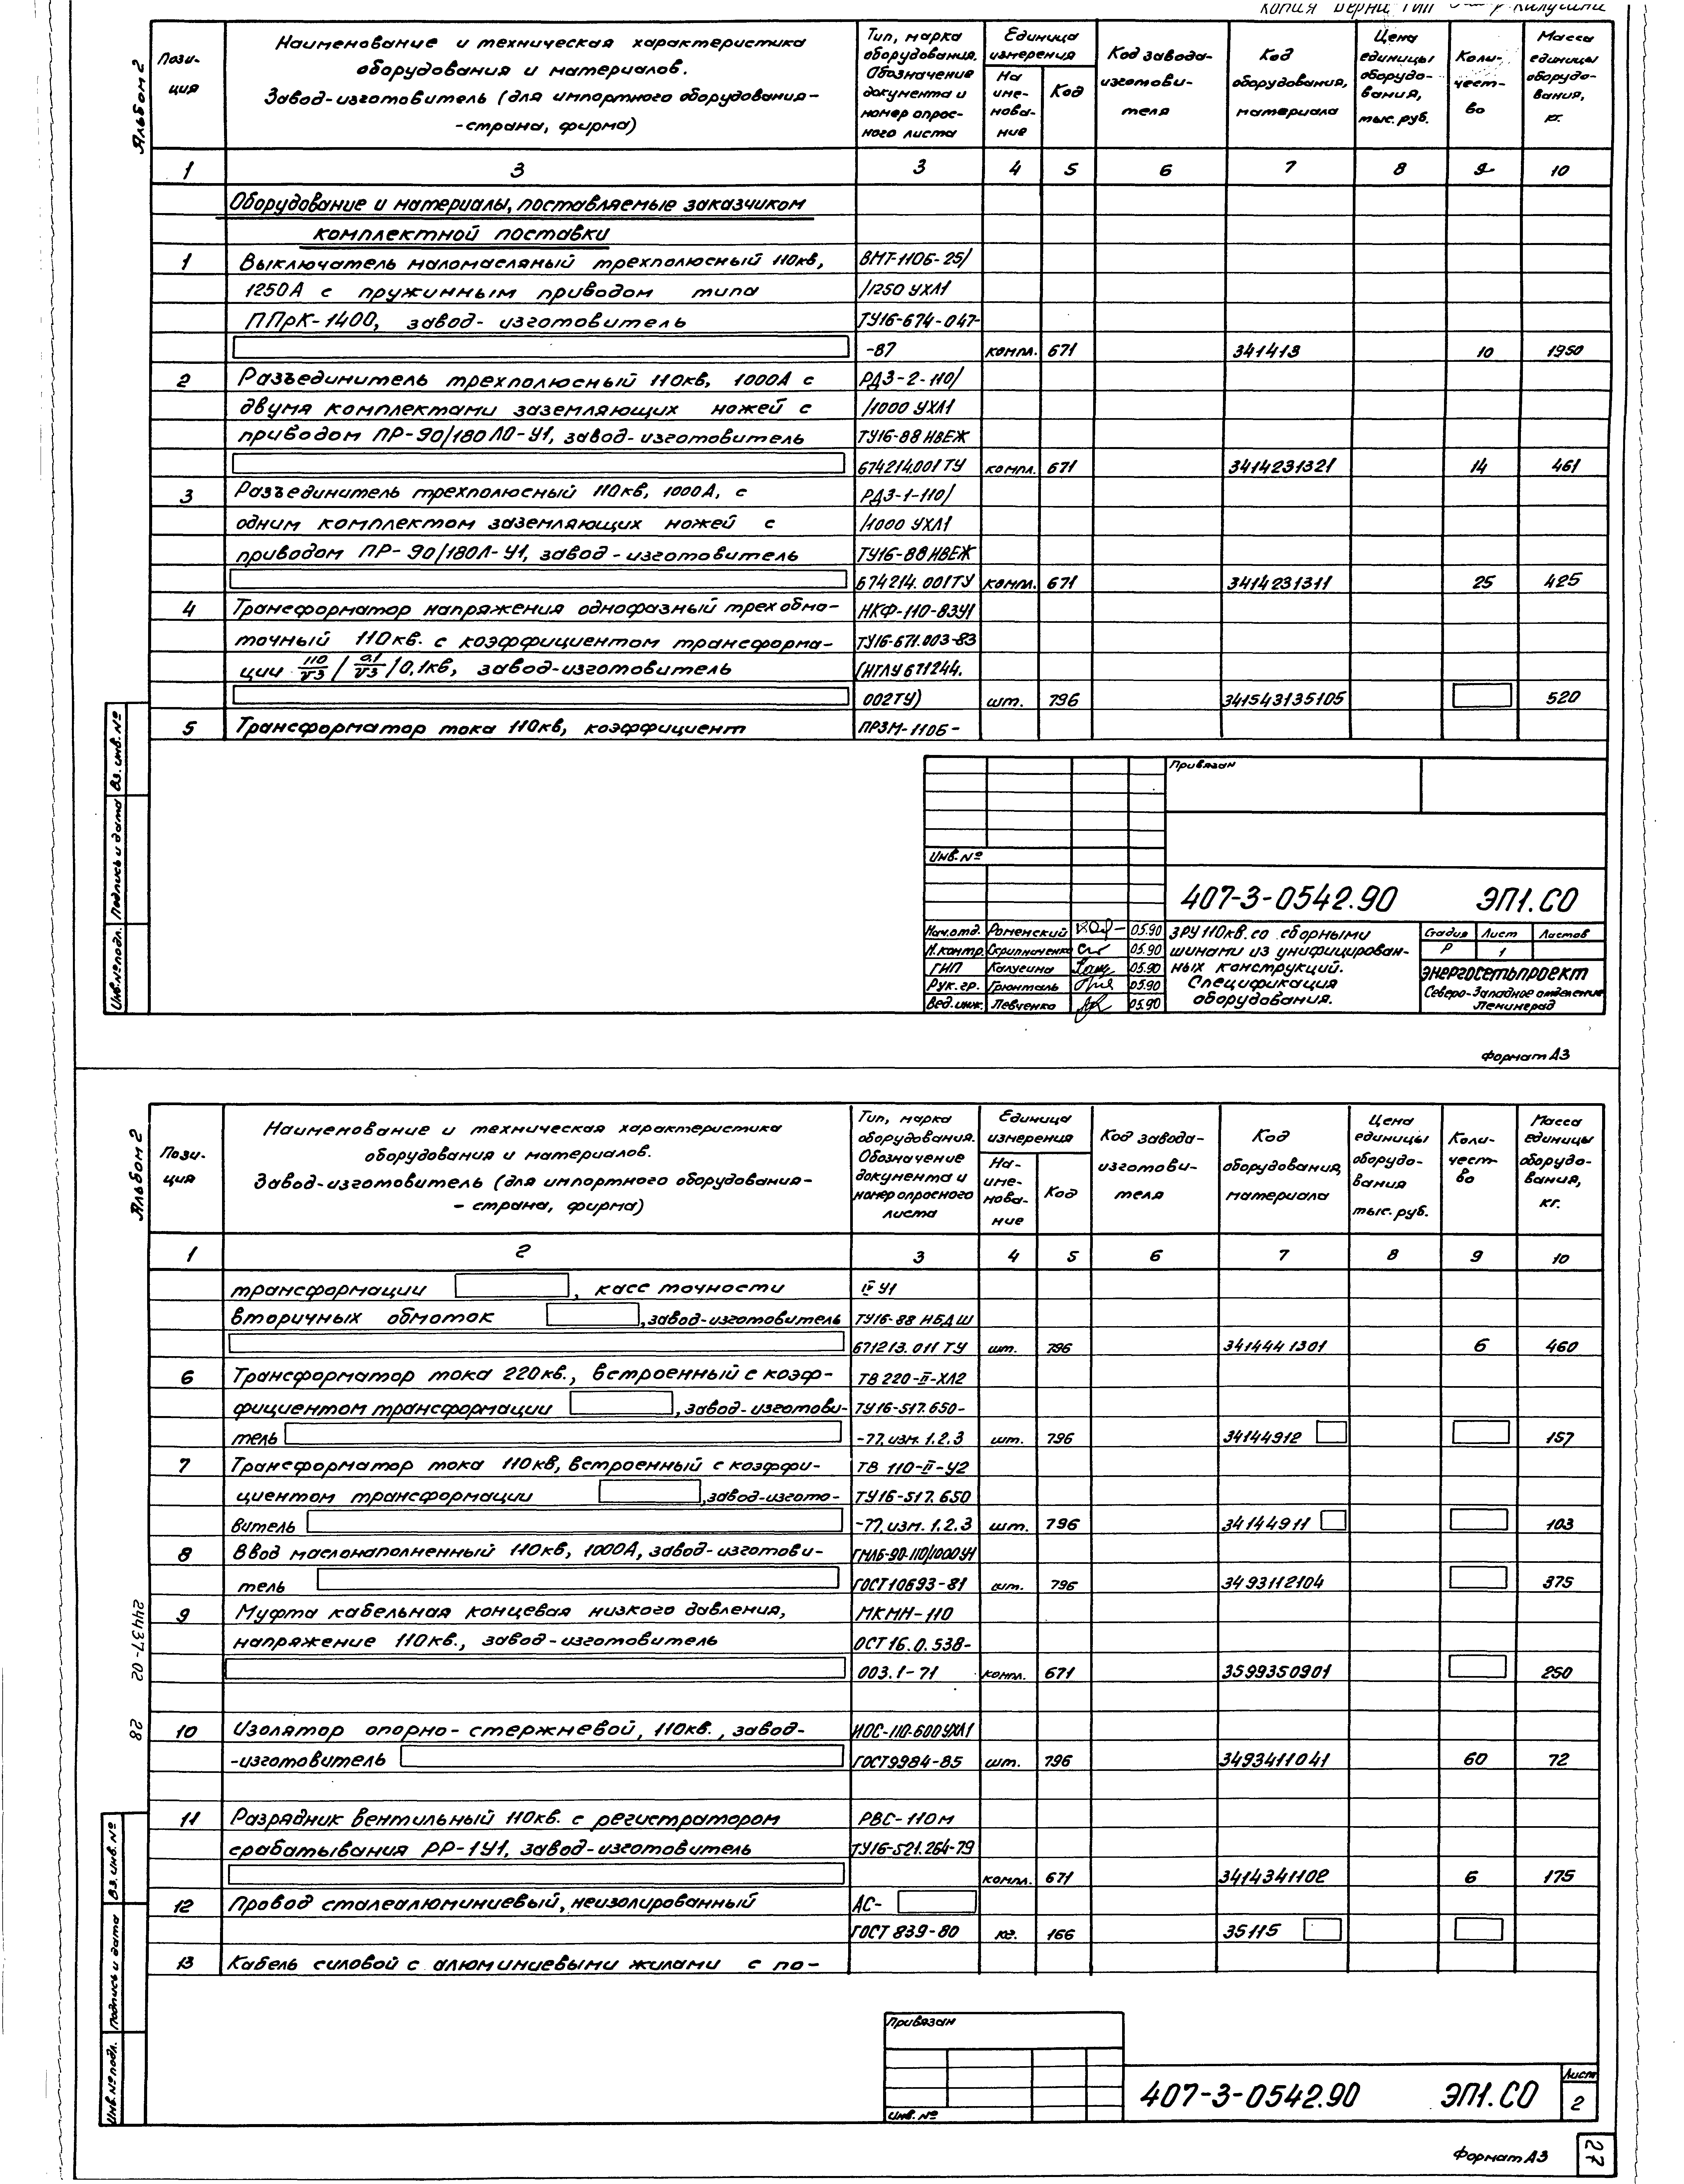 копия верна ГИП Калугина
Альбом 2
Пози-
ция
Наименование и техническая характеристика
оборудования и материалов.
Завод-изготовитель (для импортного оборудования-
-страна, фирма)
Тип, марка
оборудования.
Обозначение
документа и
номер опрос-
ного листа
Единица
измерения
На
име-
нова-
ние
Код
Код завода-
изготови-
теля
Код
оборудования,
материала
Цена
единицы
оборудо-
вания,
тыс. руб.
Коли-
чест-
во
Масса
единицы
оборудо-
вания,
кг.
1 3 3 4 5 6 7 8 9 10
Оборудование и материалы, поставляемые заказчиком
комплектной поставки
1 Выключатель маломасляный трехполюсный 110кв, ВМТ-110Б-25/
1250А с пружинным приводом типа /1250 УХЛ1
ППрК-1400, завод-изготовитель ТУ16-674-047-
-87 компл. 671 341413 10 1950
2 Разъединитель трехполюсный 110кв, 1000А с РДЗ-2-110/
двумя комплектами заземляющих ножей с /1000 УХЛ1
приводом ПР-90/180Л0-У1, завод-изготовитель ТУ16-88 НВЕЖ
674214.001 ТУ компл. 671 3414231321 14 461
3 Разъединитель трехполюсный 110кв, 1000А, с РДЗ-1-110/
одним комплектом заземляющих ножей с /1000 УХЛ1
приводом ПР-90/180Л-У1, завод-изготовитель ТУ16-88 НВЕЖ
674214.001ТУ компл. 671 3414231311 25 425
4 Трансформатор напряжения однофазный трехобмо- НКФ-110-83У1
точный 110кв. с коэффициентом трансформа- ТУ16-671.003-83
ции 110/√3 / 0,1/√3 /0,1кв, завод-изготовитель (ИГЛУ 671244.
002ТУ) шт. 796 341543135105 520
5 Трансформатор тока 110кв, коэффициент ПРЗМ-110Б-
Инв.№подл. Подпись и дата Вз. инв. №
Привязан
Инв. №
407-3-0542.90 ЭП1.СО
Нач.отд. Роменский 05.90
Н.контр. Скрипниченко 05.90
ГИП Калугина 05.90
Рук.гр. Грюнталь 05.90
Вед.инж. Левченко 05.90
ЗРУ 110кв. со сборными
шинами из унифицирован-
ных конструкций.
Спецификация
оборудования.
Стадия Лист Листов
Р 1
Энергосетьпроект
Северо-Западное отделение
Ленинград
Формат А3
Альбом 2
Пози-
ция
Наименование и техническая характеристика
оборудования и материалов.
Завод-изготовитель (для импортного оборудования-
- страна, фирма)
Тип, марка
оборудования.
Обозначение
документа и
номер опросного
листа
Единица
измерения
На-
име-
нова-
ние
Код
Код завода-
изготови-
теля
Код
оборудования,
материала
Цена
единицы
оборудо-
вания
тыс. руб.
Коли-
чест-
во
Масса
единицы
оборудо-
вания,
кг.
1 2 3 4 5 6 7 8 9 10
трансформации , касс точности IV У1
вторичных обмоток , завод-изготовитель ТУ16-88 НБДШ
671213.011 ТУ шт. 796 3414441301 6 460
6 Трансформатор тока 220кв., встроенный с коэф- ТВ 220-II-ХЛ2
фициентом трансформации , завод-изготови- ТУ16-517.650-
тель -77. изм. 1.2.3 шт. 796 34144912 157
7 Трансформатор тока 110кв, встроенный с коэффи- ТВ 110-II-У2
циентом трансформации , завод-изгото- ТУ16-517.650
витель -77. изм. 1.2.3 шт. 796 34144911 103
8 Ввод маслонаполненный 110кв, 1000А, завод-изготови- ГМЛБ-90-110/1000У1
тель ГОСТ10693-81 шт. 796 3493112104 375
9 Муфта кабельная концевая низкого давления, МКМН-110
напряжение 110кв., завод-изготовитель ОСТ 16.0.538-
003.1-71 компл. 671 3599350901 250
10 Изолятор опорно-стержневой, 110кв., завод- ИОС-110-600УХЛ1
-изготовитель ГОСТ9984-85 шт. 796 3493411041 60 72
11 Разрядник вентильный 110кв. с регистратором РВС-110м
срабатывания РР-1У1, завод-изготовитель ТУ16-521.264-79
компл. 671 3414341102 6 175
12 Провод сталеалюминиевый, неизолированный АС-
ГОСТ 839-80 кг. 166 35115
13 Кабель силовой с алюминиевыми жилами с по-
24437-02 28
Инв.№подл. Подпись и дата Вз. инв. №
Привязан
Инв. №
407-3-0542.90 ЭП1.СО
Лист
2
Формат А3
27